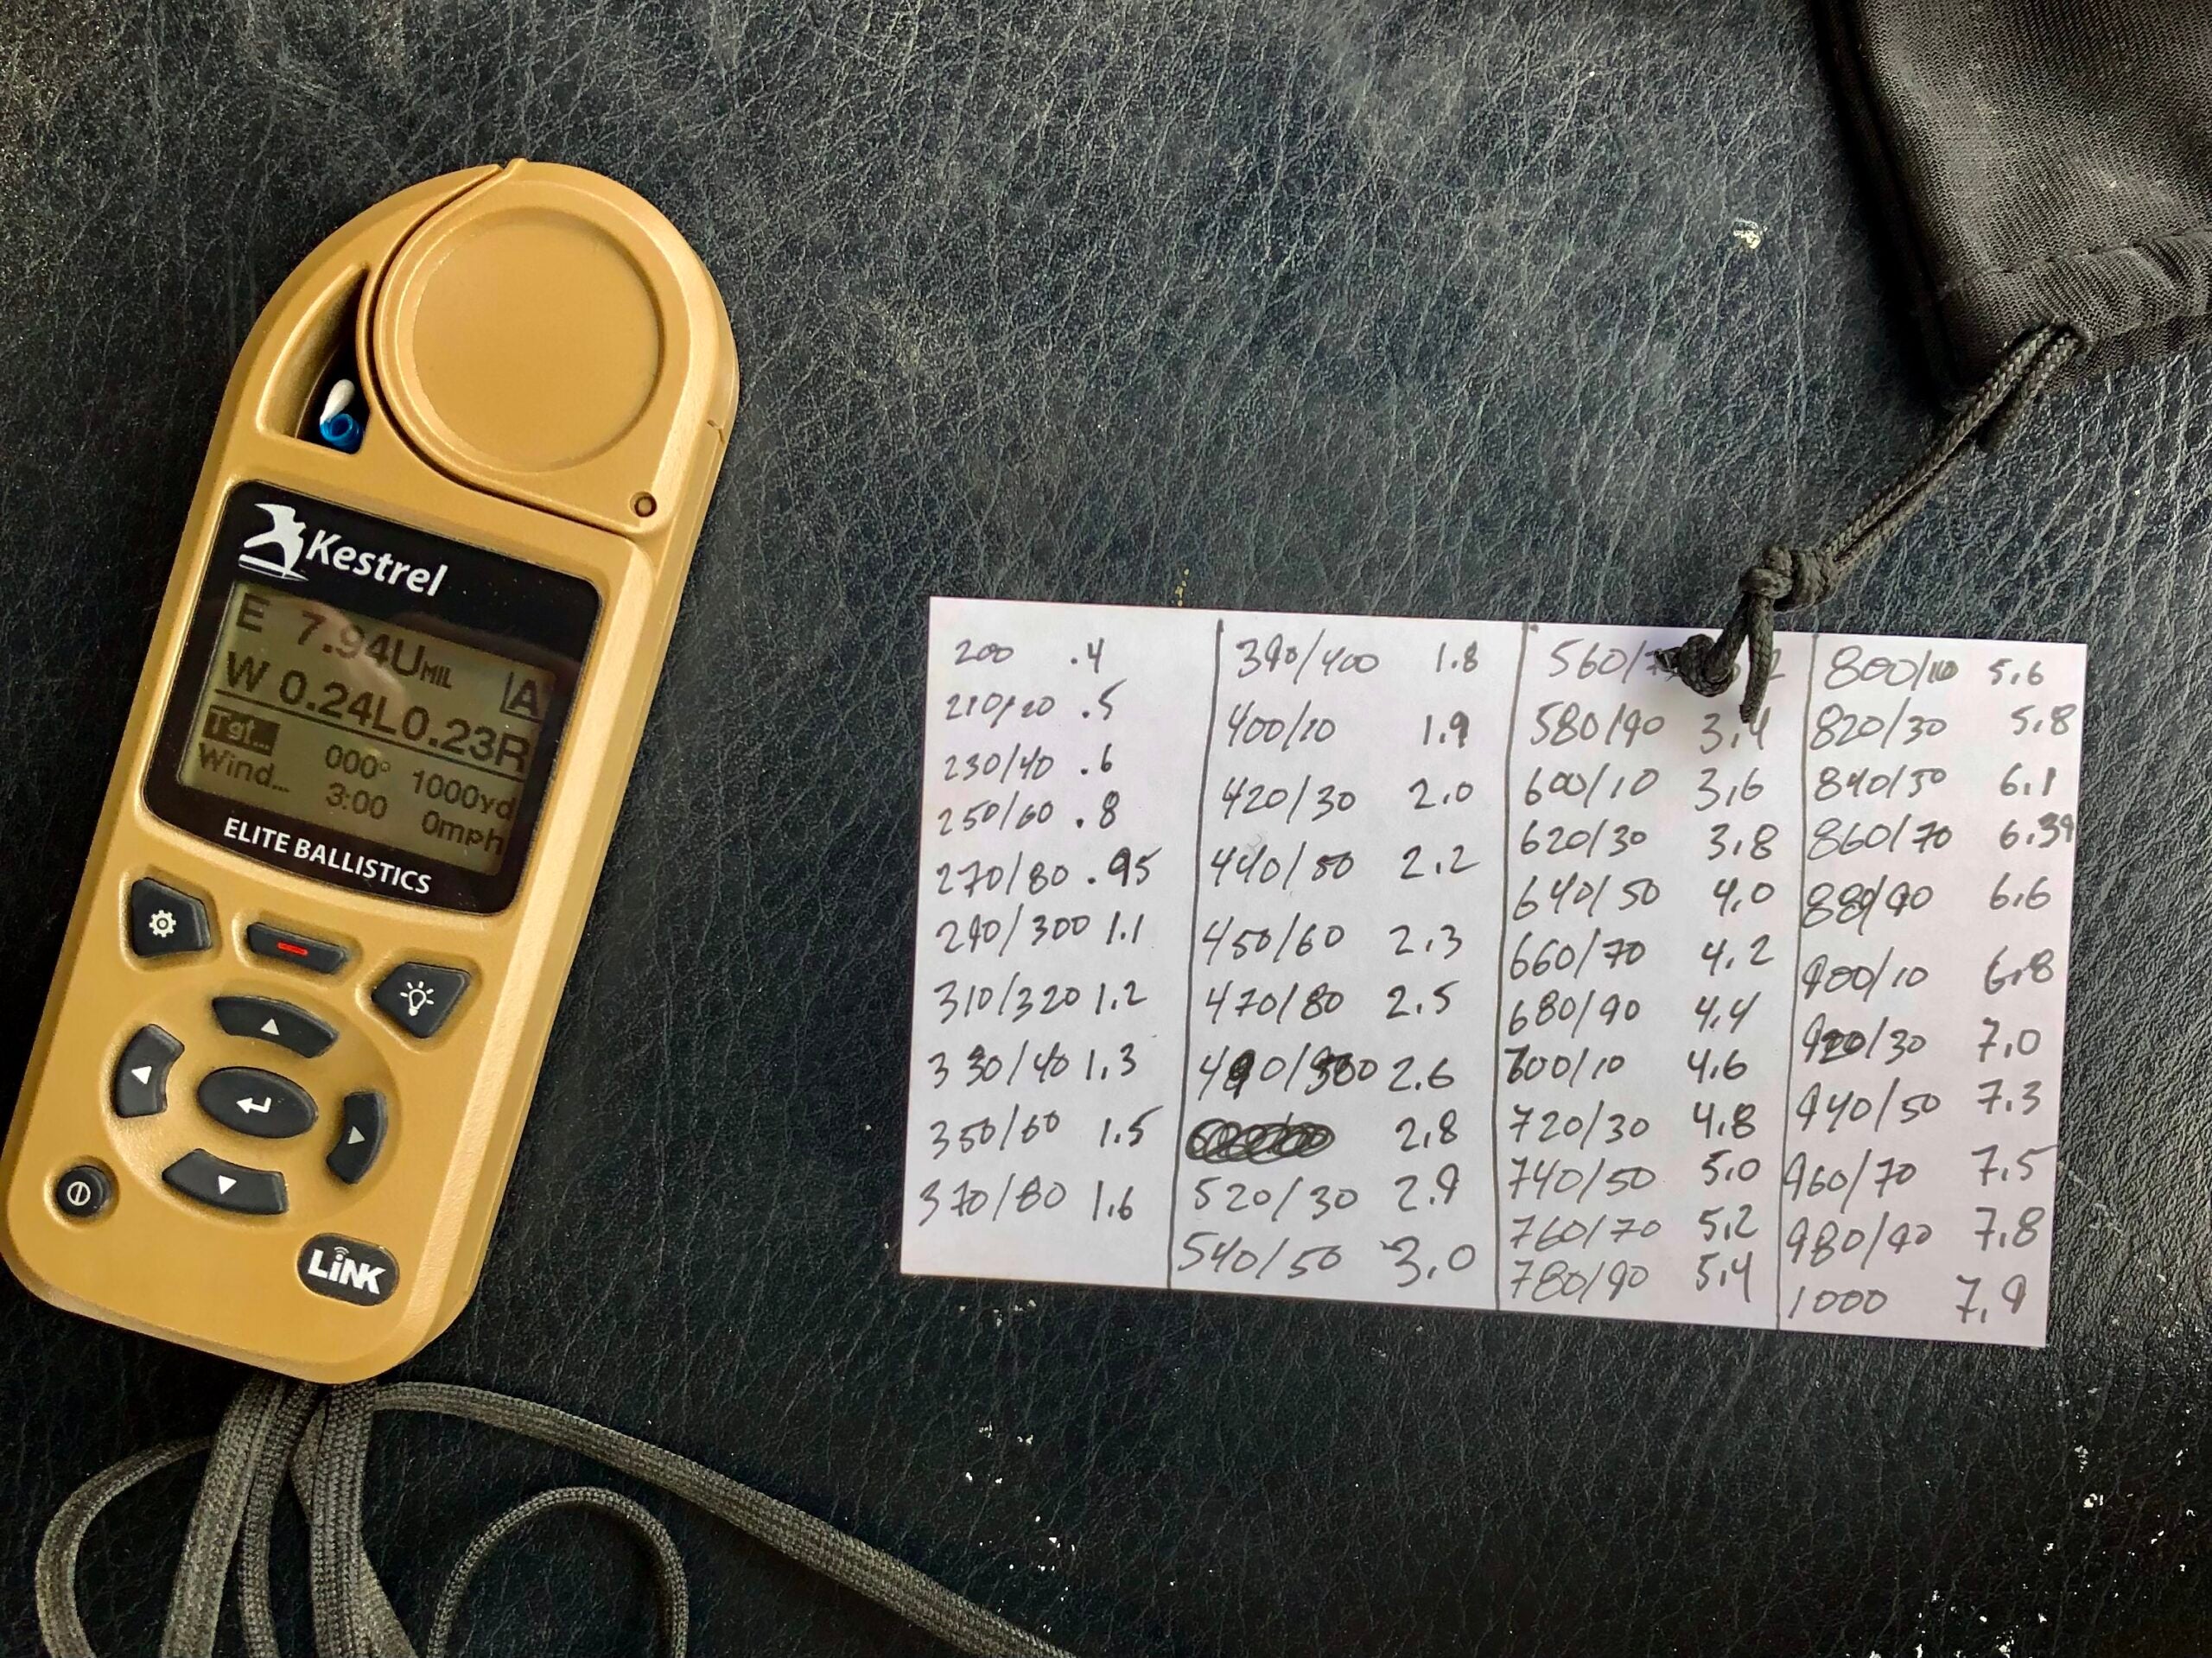 Kestrel
E 7.94UMIL
W 0.24L0.23R A
Tgt... 000° 1000yd
Wind... 3:00 0mph
ELITE BALLISTICS
LiNK
200 .4
210/20 .5
230/40 .6
250/60 .8
270/80 .95
290/300 1.1
310/320 1.2
330/40 1.3
350/60 1.5
370/80 1.6
390/400 1.8
400/10 1.9
420/30 2.0
440/50 2.2
450/60 2.3
470/80 2.5
490/500 2.6
2.8
520/30 2.9
540/50 3.0
560/7
580/90 3.4
600/10 3.6
620/30 3.8
640/50 4.0
660/70 4.2
680/90 4.4
700/10 4.6
720/30 4.8
740/50 5.0
760/70 5.2
780/90 5.4
800/10 5.6
820/30 5.8
840/50 6.1
860/70 6.39
880/90 6.6
900/10 6.8
920/30 7.0
940/50 7.3
960/70 7.5
980/90 7.8
1000 7.9